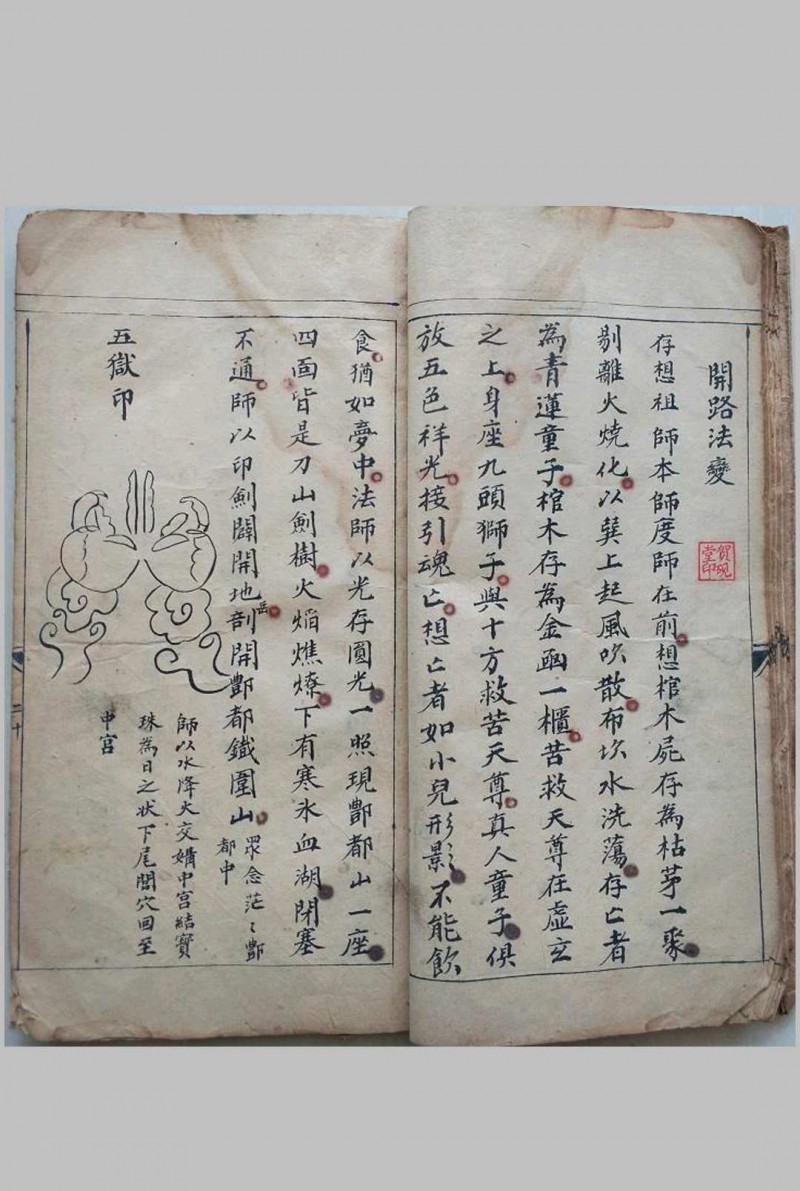 開路法變
存想祖師本師度師在前想棺木屍存為枯茅一聚
剔離火燒化以巽上起風吹散布坎水洗蕩存亡者
為青蓮童子棺木存為金凾一櫃苦救天尊在虛玄
之上身座九頭獅子與十方救苦天尊真人童子俱
放五色祥光接引魂亡想亡者如小兒形影不能飲
食猶如夢中法師以光存圓光一照現酆都山一座
四面皆是刀山劍樹火焰燋燎下有寒氷血湖閉塞
不通師以印劍闢開地岳剖開酆都鐵圍山眾念茫〻酆
都中
五獄印
師以水降火交媾中宮結寳
珠為日之狀下尾閭穴回至
中宮
二十